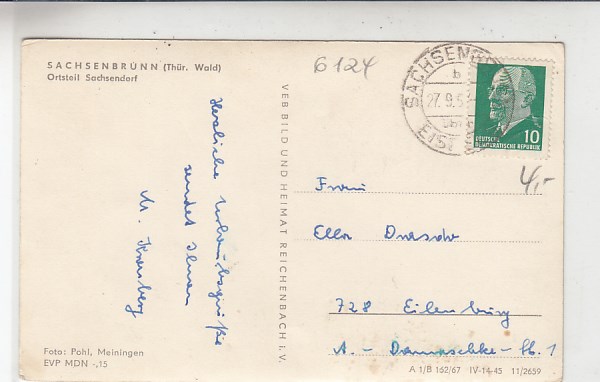 SACHSENBRUNN (Thür. Wald)
Ortsteil Sachsendorf
6124
SACHSENB
b
27.9.6
EIS
10
DEUTSCHE
DEMOKRATISCHE REPUBLIK
4,-
Herzliche Urlaubsgrüße
sendet Ihnen
VEB BILD UND HEIMAT REICHENBACH I. V.
Frau
Ella
728 Eilenburg
A.-Damaschke-Str. 1
Foto: Pohl, Meiningen
EVP MDN -,15
A 1/B 162/67 IV-14-45 11/2659